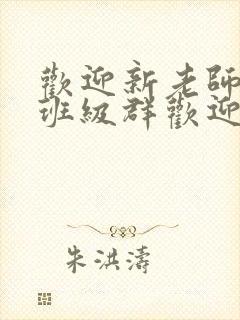 歡迎新老師
班級群歡迎
朱洪濤